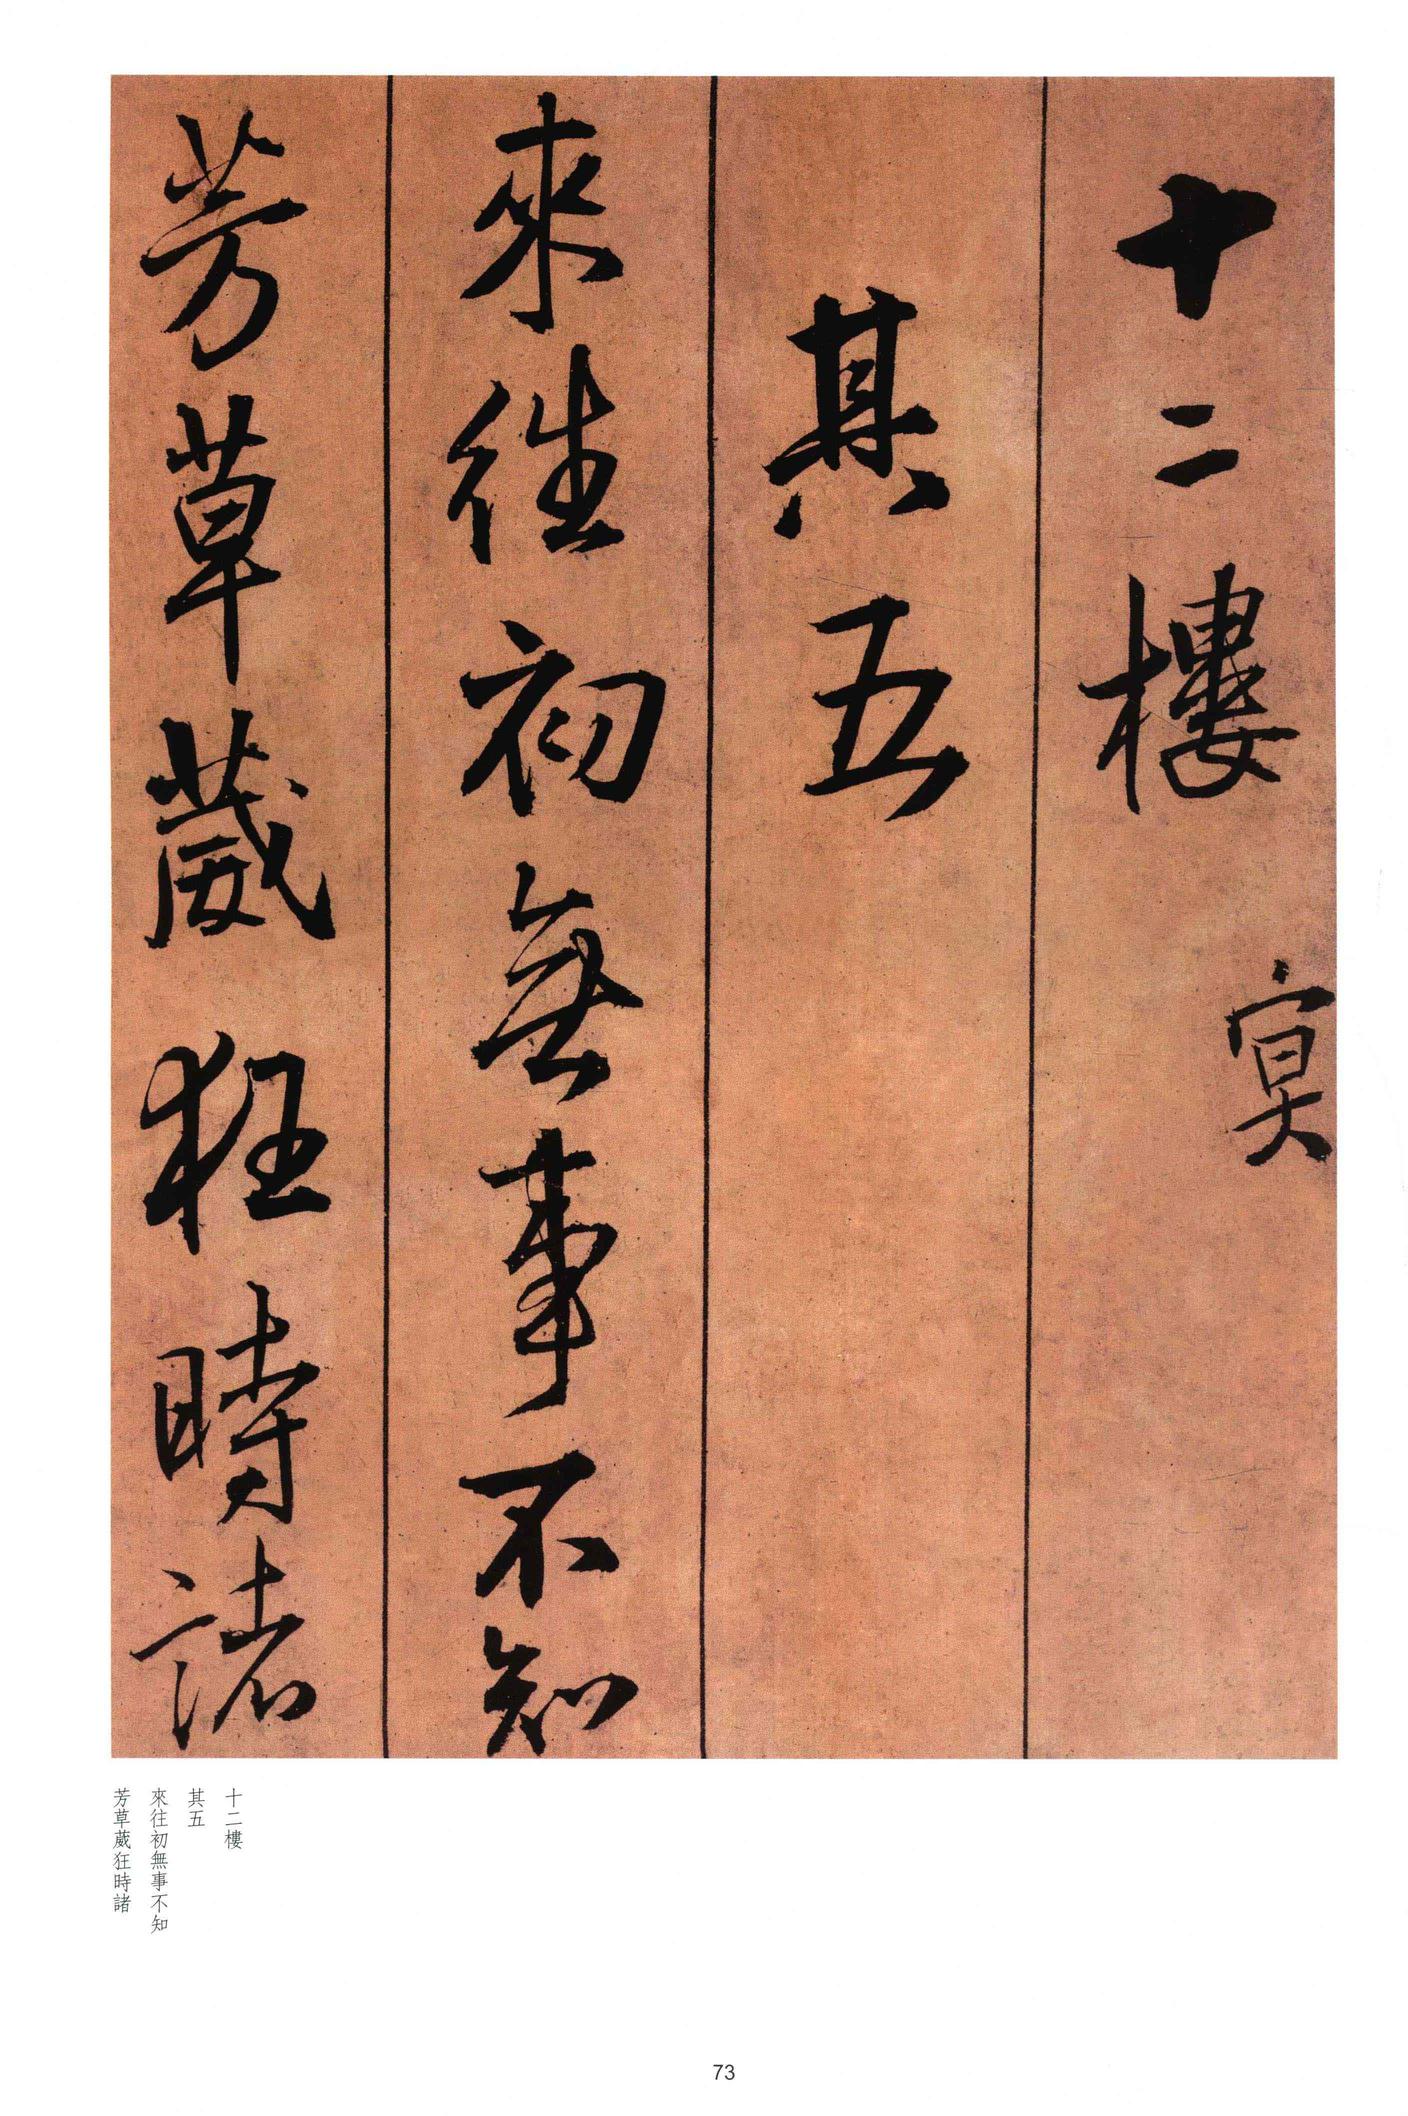 十二樓
冥
其五
來往初無事不知
芳草葳狂時諸
十二樓
其五
來往初無事不知
芳草葳狂時諸
73